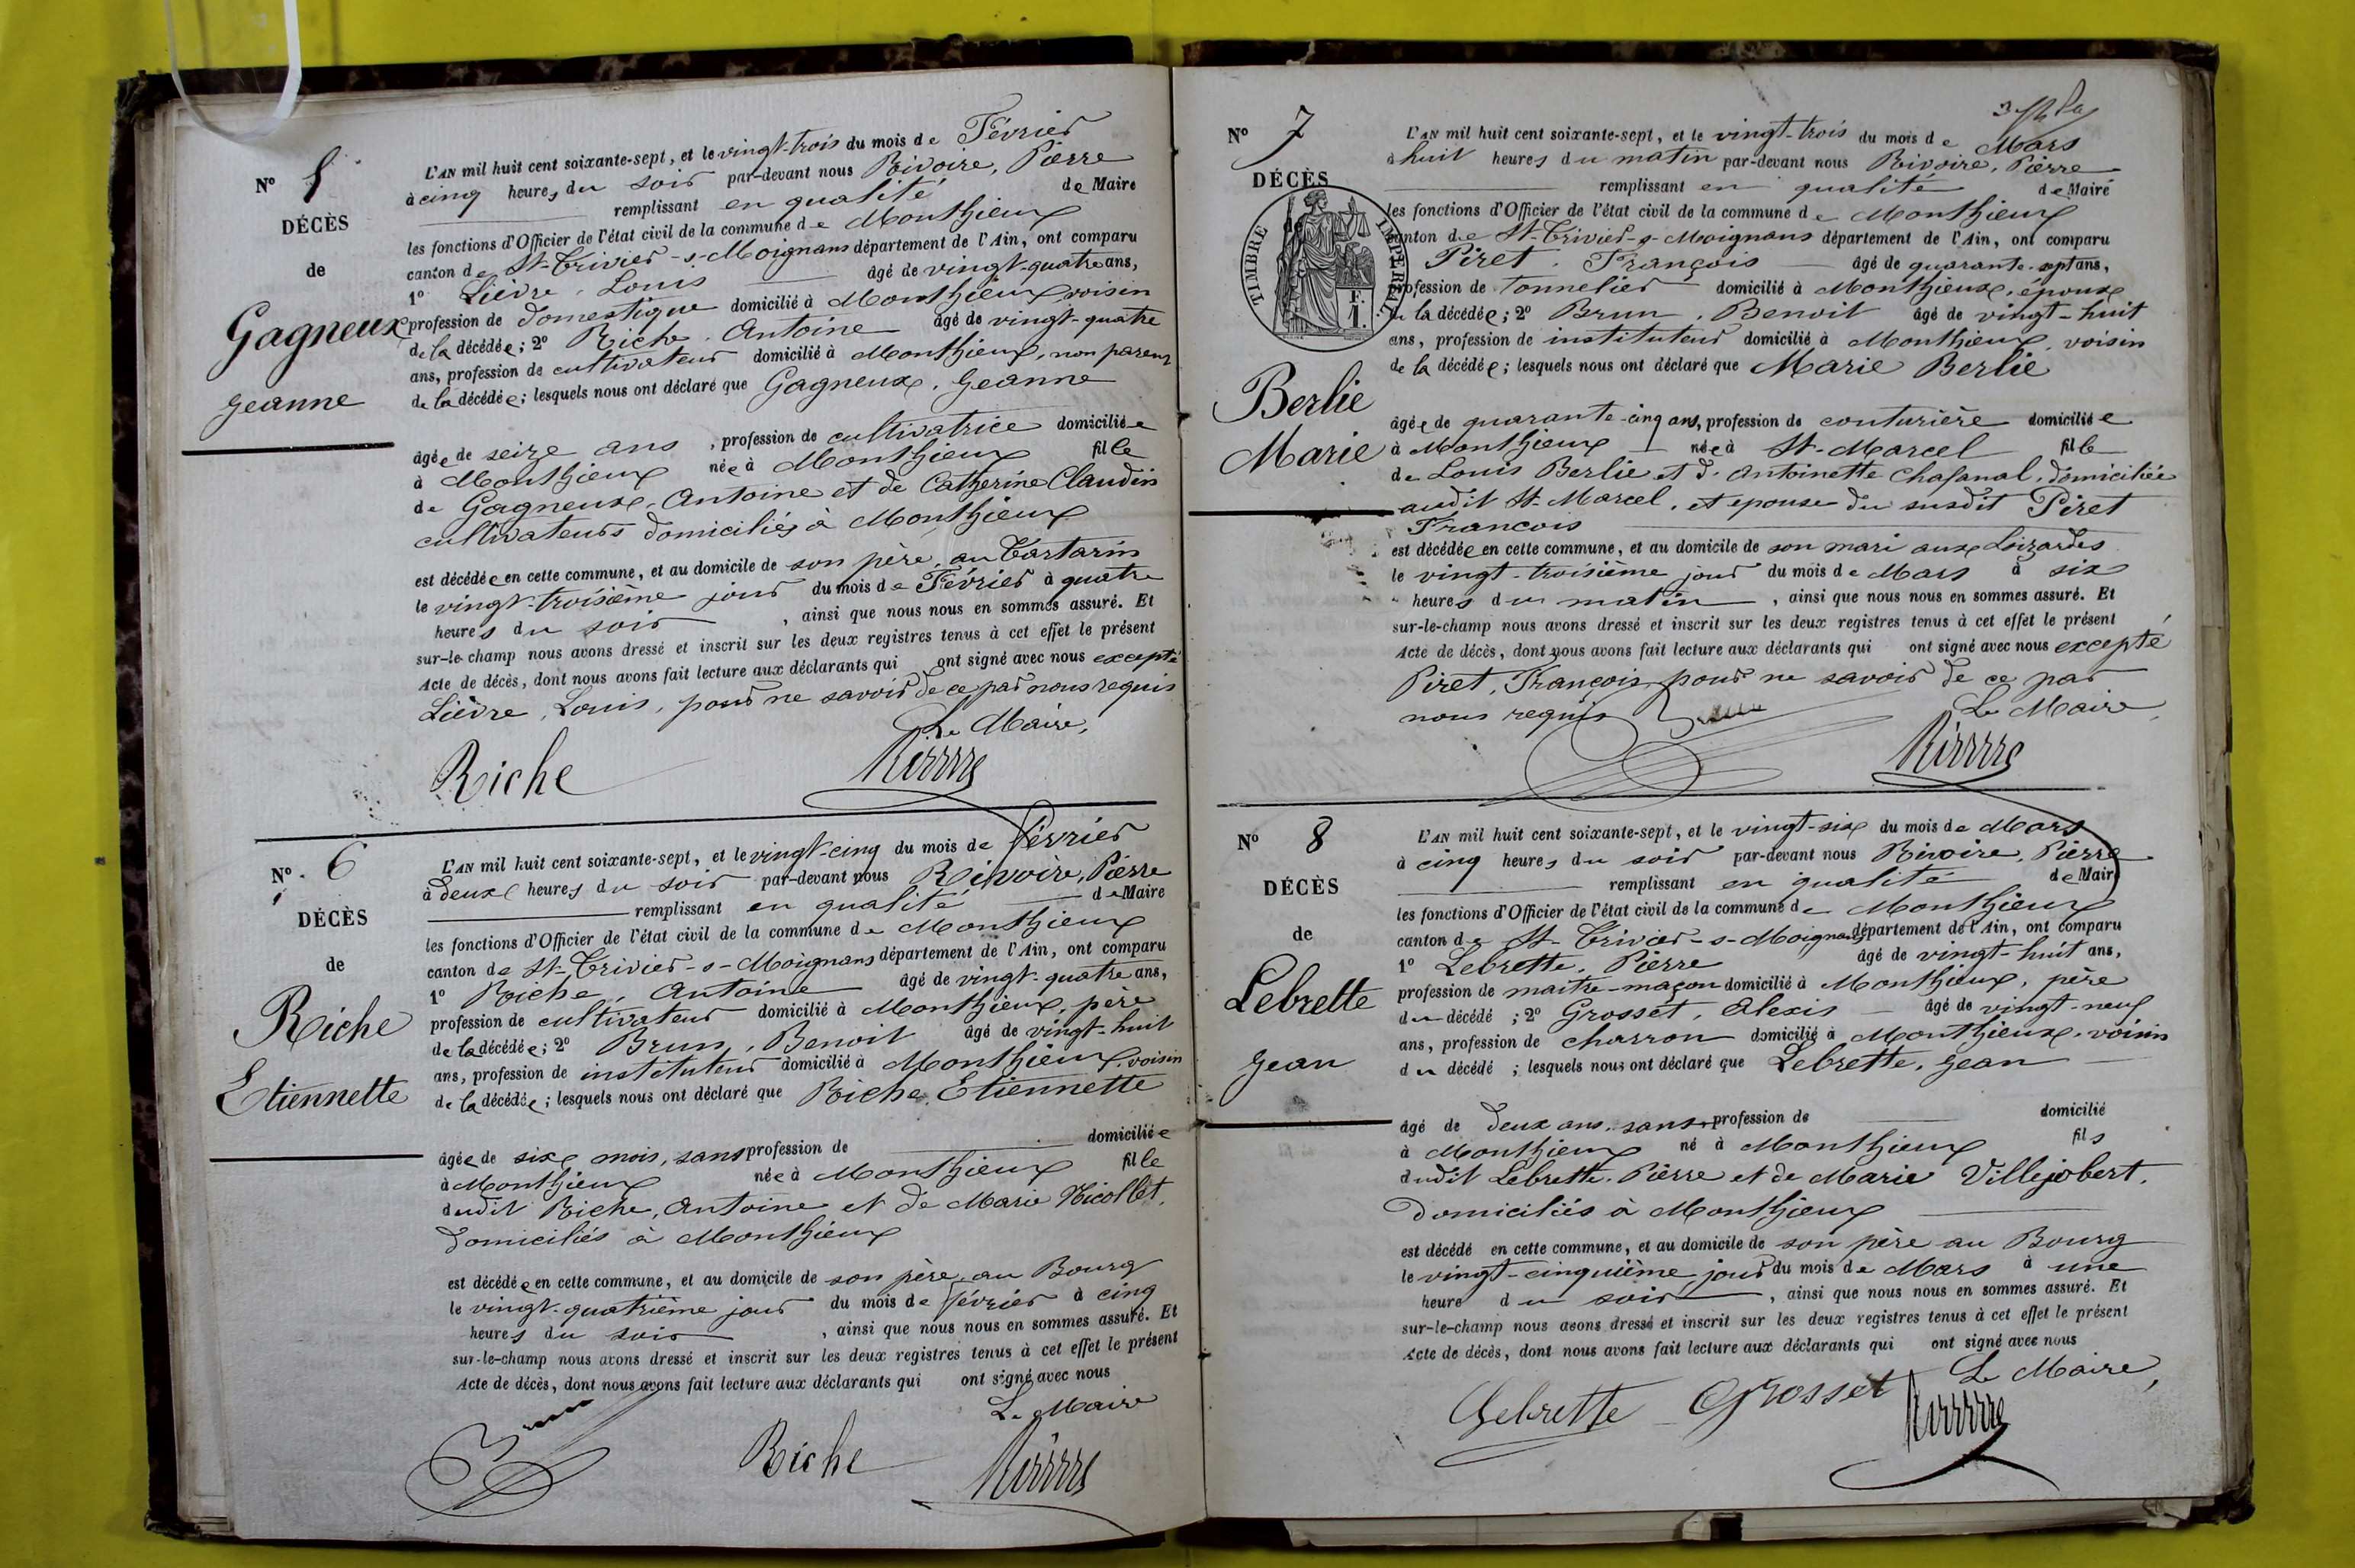 N° 5
DÉCÈS
de
Gagneux
Jeanne
L'AN mil huit cent soixante-sept, et le vingt-trois du mois de Février
à cinq heures du soir par-devant nous Rivoire, Pierre
remplissant en qualité de Maire
les fonctions d'Officier de l'état civil de la commune de Monthieux
canton de St-Trivier-s-Moignans département de l'Ain, ont comparu
1° Lièvre, Louis âgé de vingt-quatre ans,
profession de domestique domicilié à Monthieux, voisin
de la décédée; 2° Riche, Antoine âgé de vingt-quatre
ans, profession de cultivateur domicilié à Monthieux, non parent
de la décédée; lesquels nous ont déclaré que Gagneux, Jeanne
âgée de seize ans, profession de cultivatrice domiciliée
à Monthieux née à Monthieux fille
de Gagneux, Antoine et de Catherine Claudin
cultivateurs domiciliés à Monthieux
est décédée en cette commune, et au domicile de son père, au Tartarin
le vingt-troisième jour du mois de Février à quatre
heures du soir, ainsi que nous nous en sommes assuré. Et
sur-le-champ nous avons dressé et inscrit sur les deux registres tenus à cet effet le présent
Acte de décès, dont nous avons fait lecture aux déclarants qui ont signé avec nous excepté
Lièvre, Louis, pour ne savoir de ce par nous requis
Le Maire,
Riche
N° 6
DÉCÈS
de
Riche
Etiennette
L'AN mil huit cent soixante-sept, et le vingt-cinq du mois de février
à deux heures du soir par-devant nous Rivoire, Pierre
remplissant en qualité de Maire
les fonctions d'Officier de l'état civil de la commune de Monthieux
canton de St-Trivier-s-Moignans département de l'Ain, ont comparu
1° Riche, Antoine âgé de vingt-quatre ans,
profession de cultivateur domicilié à Monthieux, père
de la décédée; 2° Brun, Benoit âgé de vingt-huit
ans, profession de instituteur domicilié à Monthieux, voisin
de la décédée; lesquels nous ont déclaré que Riche, Etiennette
âgée de six mois, sans profession de domiciliée
à Monthieux née à Monthieux fille
dudit Riche, Antoine et de Marie Nicollet,
domiciliés à Monthieux
est décédée en cette commune, et au domicile de son père, au Bourg
le vingt-quatrième jour du mois de février à cinq
heures du soir, ainsi que nous nous en sommes assuré. Et
sur-le-champ nous avons dressé et inscrit sur les deux registres tenus à cet effet le présent
Acte de décès, dont nous avons fait lecture aux déclarants qui ont signé avec nous
Le Maire
Riche
N° 7
DÉCÈS
TIMBRE IMPERIAL
F. 1.
Berlie
Marie
L'AN mil huit cent soixante-sept, et le vingt-trois du mois de Mars
à huit heures du matin par-devant nous Rivoire, Pierre
remplissant en qualité de Maire
les fonctions d'Officier de l'état civil de la commune de Monthieux
canton de St-Trivier-s-Moignans département de l'Ain, ont comparu
Piret, François âgé de quarante-sept ans,
profession de tonnelier domicilié à Monthieux, époux
de la décédée; 2° Brun, Benoit âgé de vingt-huit
ans, profession de instituteur domicilié à Monthieux, voisin
de la décédée; lesquels nous ont déclaré que Marie Berlie
âgée de quarante-cinq ans, profession de couturière domiciliée
à Monthieux née à St-Marcel fille
de Louis Berlie et d'Antoinette Chafanal, domiciliée
audit St-Marcel, et epouse du susdit Piret
François
est décédée en cette commune, et au domicile de son mari aux Loizardes
le vingt-troisième jour du mois de Mars à six
heures du matin, ainsi que nous nous en sommes assuré. Et
sur-le-champ nous avons dressé et inscrit sur les deux registres tenus à cet effet le présent
Acte de décès, dont nous avons fait lecture aux déclarants qui ont signé avec nous excepté
Piret, François, pour ne savoir de ce par
nous requis
Le Maire,
N° 8
DÉCÈS
de
Lebrette
Jean
L'AN mil huit cent soixante-sept, et le vingt-six du mois de Mars
à cinq heures du soir par-devant nous Rivoire, Pierre
remplissant en qualité de Maire
les fonctions d'Officier de l'état civil de la commune de Monthieux
canton de St-Trivier-s-Moignans département de l'Ain, ont comparu
1° Lebrette, Pierre âgé de vingt-huit ans,
profession de maitre-maçon domicilié à Monthieux, père
du décédé; 2° Grosset, Alexis âgé de vingt-neuf
ans, profession de charron domicilié à Monthieux, voisin
du décédé; lesquels nous ont déclaré que Lebrette, Jean
âgé de deux ans, sans profession de domicilié
à Monthieux né à Monthieux fils
dudit Lebrette, Pierre et de Marie Villejobert,
domiciliés à Monthieux
est décédé en cette commune, et au domicile de son père au Bourg
le vingt-cinquième jour du mois de Mars à une
heure du soir, ainsi que nous nous en sommes assuré. Et
sur-le-champ nous avons dressé et inscrit sur les deux registres tenus à cet effet le présent
Acte de décès, dont nous avons fait lecture aux déclarants qui ont signé avec nous
Le Maire,
Lebrette Grosset